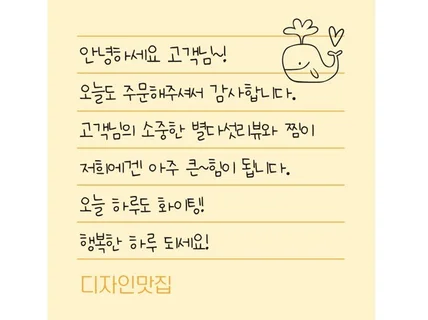 안녕하세요 고객님~!
오늘도 주문해주셔서 감사합니다.
고객님의 소중한 별다섯리뷰와 찜이
저희에겐 아주 큰~힘이 됩니다.
오늘 하루도 화이팅!
행복한 하루 되세요!
디자인맛집